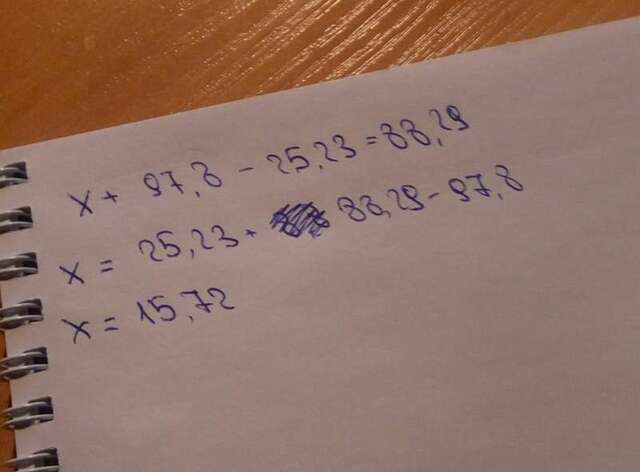 x + 97,8 - 25,23 = 88,29
x = 25,23 + 88,29 - 97,8
x = 15,72